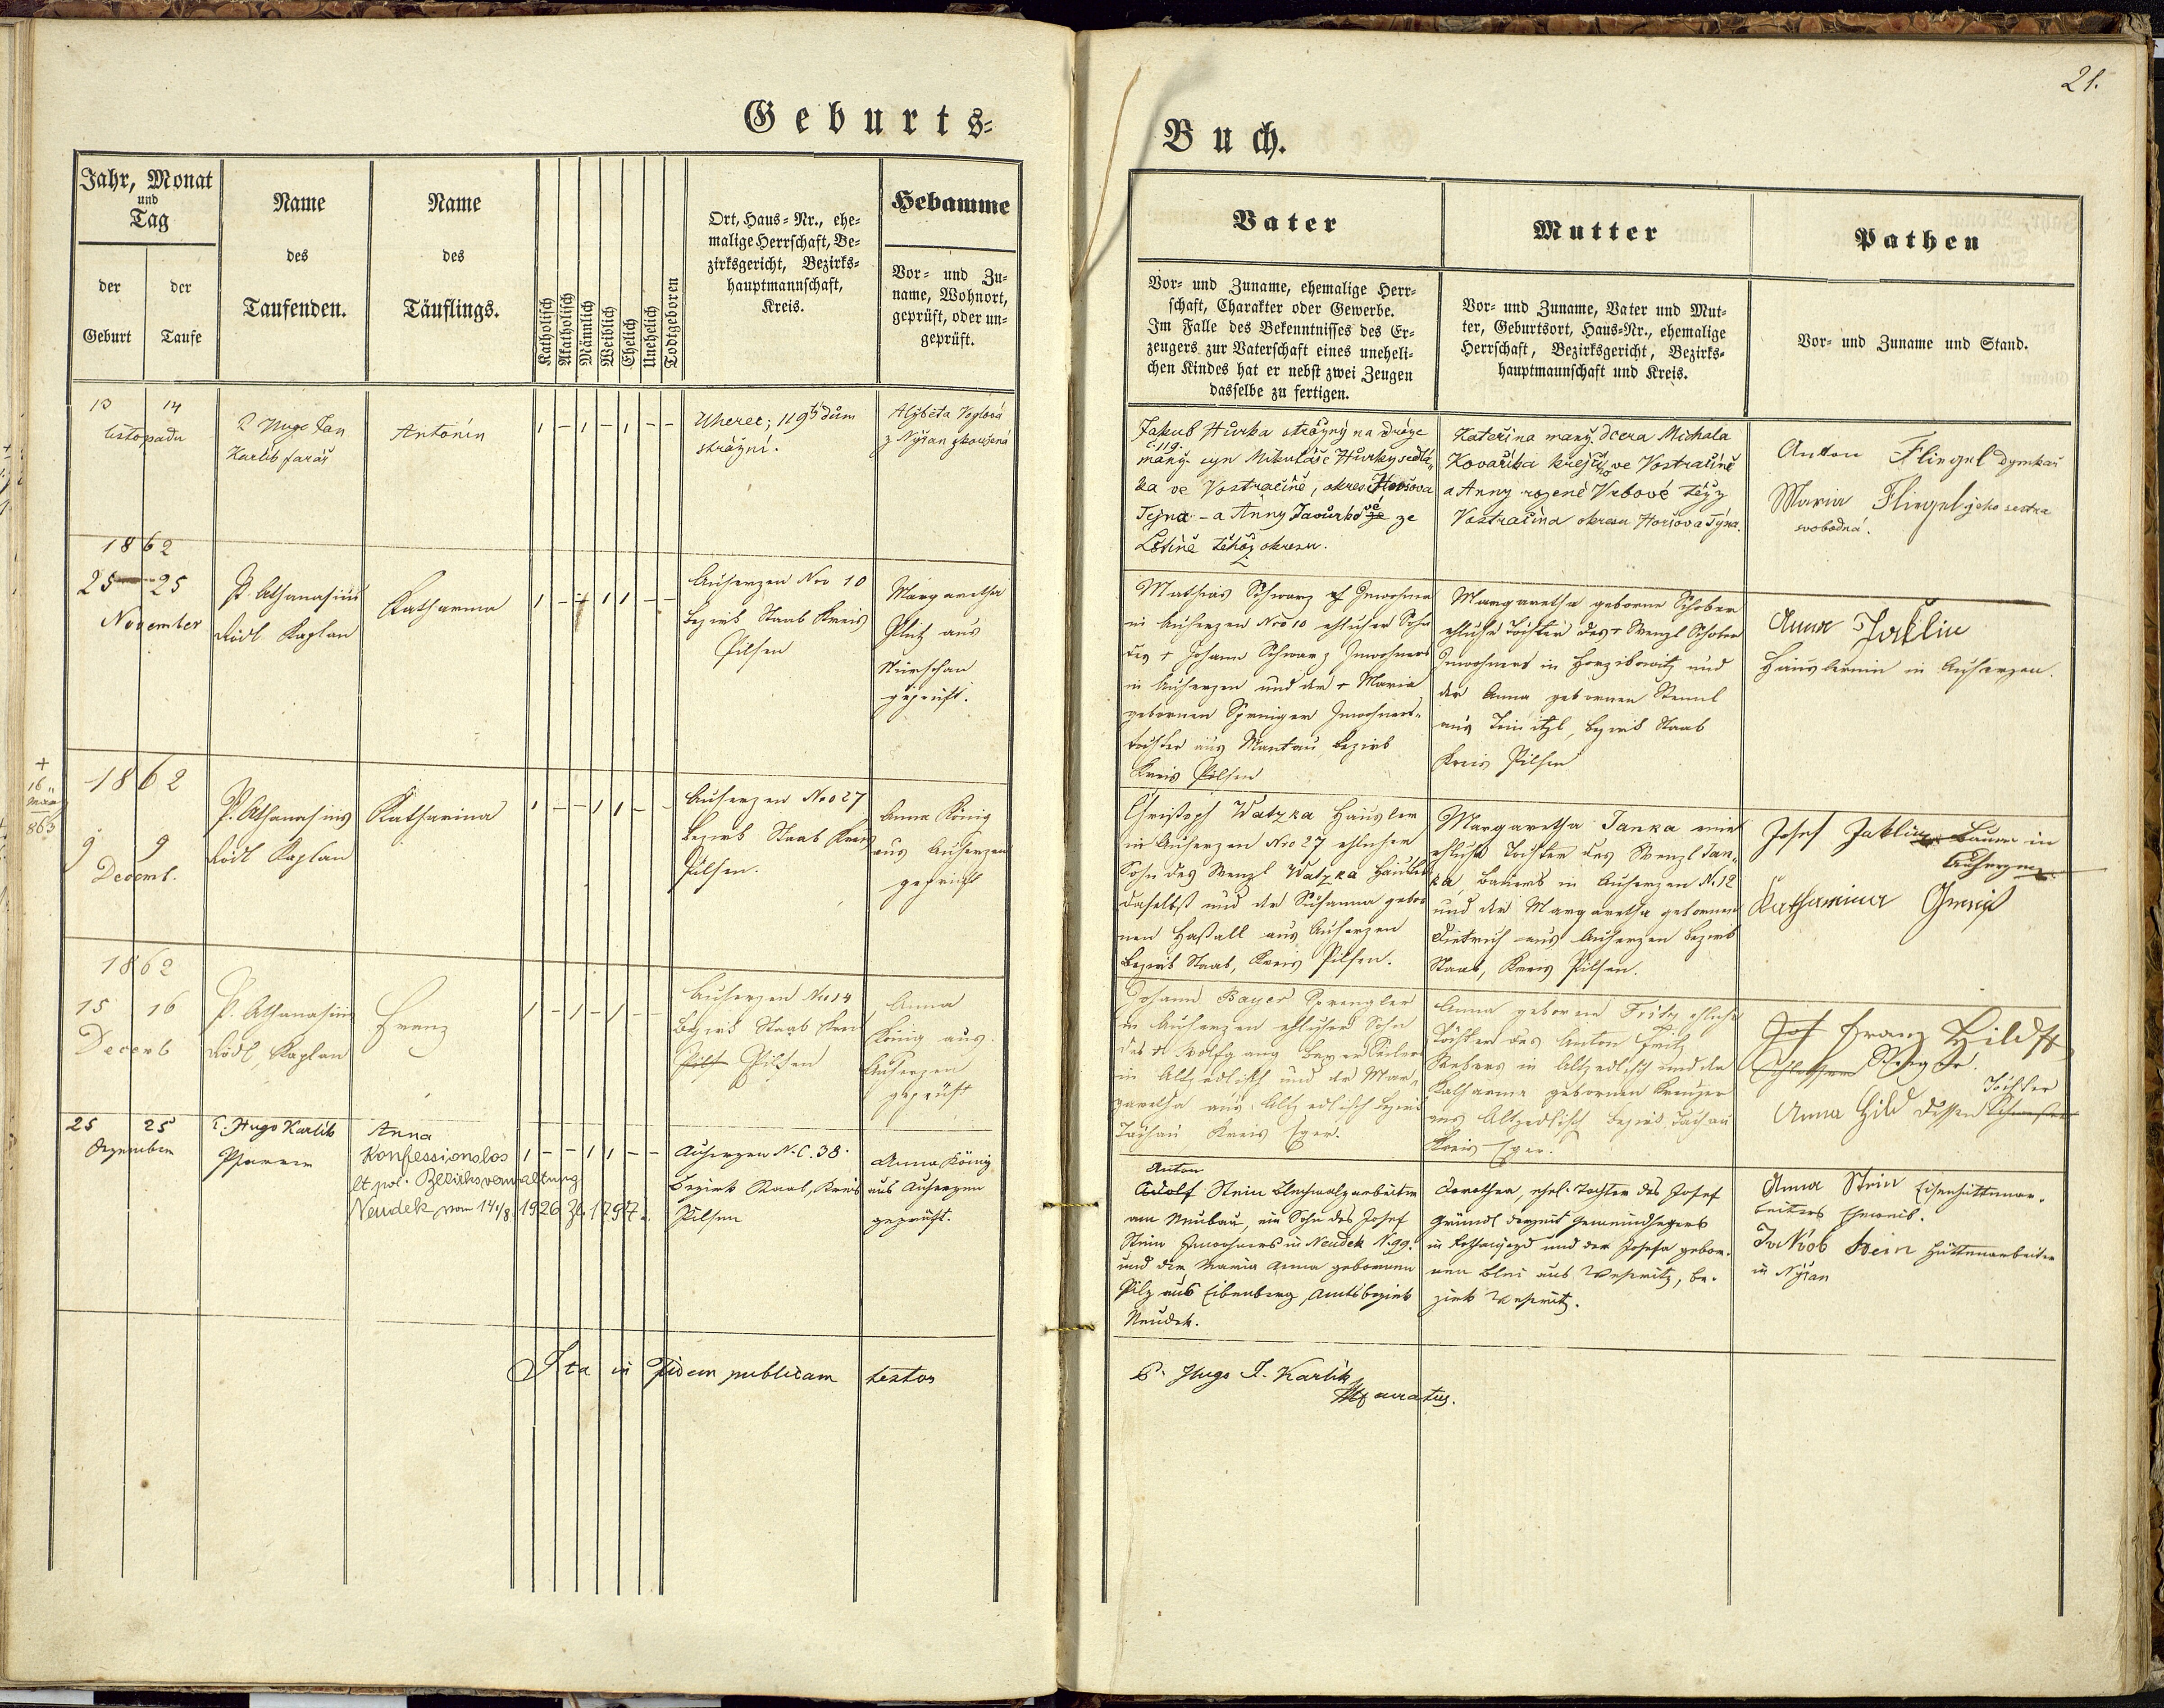 Geburts=
Buch.
21.
Jahr, Monat
und
Tag
der
Geburt
der
Taufe
Name
des
Taufenden.
Name
des
Täuflings.
Katholisch
Akatholisch
Männlich
Weiblich
Ehelich
Unehelich
Todtgeboren
Ort, Haus=Nr., ehe=
malige Herrschaft, Be=
zirksgericht, Bezirks=
hauptmannschaft,
Kreis.
Hebamme
Vor= und Zu=
name, Wohnort,
geprüft, oder un=
geprüft.
Vater
Vor= und Zuname, ehemalige Herr=
schaft, Charakter oder Gewerbe.
Im Falle des Bekenntnisses des Er=
zeugers zur Vaterschaft eines uneheli=
chen Kindes hat er nebst zwei Zeugen
dasselbe zu fertigen.
Mutter
Vor= und Zuname, Vater und Mut=
ter, Geburtsort, Haus=Nr., ehemalige
Herrschaft, Bezirksgericht, Bezirks=
hauptmannschaft und Kreis.
Pathen
Vor= und Zuname und Stand.
13 14
listopadu
P. Hugo Jan
Karlík farář
Antonín
1 – 1 – 1 – –
Uherec; 119 dům
strážní.
Alžběta Voglová
z Nýřan zkoušená
Jakub Hůrka strážný na dráze
č. 119.
manž. syn Mikuláše Hůrky sedlá„
ka ve Vostračíně, okres Horšova
Tejna – a Anny ze
téhož okresu.
Kateřina manž. dcera Michala
Kovaříka krejčího ve Vostračíně
a Anny rozené Vrbové též z
Vostračína okresu Horšova Týna.
Anton Fliegel dymkař
Maria Fliegel jeho sestra
svobodná.
1862
25 25
November
P. Athanasius
Rödl Kaplan
Katharina
1 – – 1 1 – –
Auherzen Nro 10
Bezirk Staab Kreis
Pilsen
Margaretha
Plutz aus
Nürschan
geprüft.
Mathias Schwarz Inwohner
in Auherzen Nro 10 ehlicher Sohn
des + Johann Schwarz Inwohners
in Auherzen und der + Maria
gebornen Springer Inwohners„
tochter aus Mantau, Bezirk
Kreis Pilsen
Margaretha geborne Schober
ehliche Tochter des + Wenzl Schober
Inwohners in Horzikowitz und
der Anna gebornen
aus Teinitzl, Bezirk Staab
Kreis Pilsen
Anna Jaklin
Häuslerin in Auherzen.
+
16
März
863
1862
9 9
Decemb.
P. Athanasius
Rödl Kaplan
Katharina
1 – – 1 1 – –
Auherzen Nro 27
Bezirk Staab Kreis
Pilsen.
Anna König
aus Auherzen
geprüft
Christoph Watzka Häusler
in Auherzen Nro 27 ehlicher
Sohn des Wenzl Watzka Häusler
daselbst und der Susanna gebor
nen Haßall aus Auherzen
Bezirk Staab, Kreis Pilsen.
Margaretha Janka eine
ehliche Tochter des Wenzl Jan„
ka, Bauers in Auherzen N. 12
und der Margaretha gebornen
Dietrich aus Auherzen Bezirk
Staab, Kreis Pilsen.
Josef Jaklin Bauer in
Auherzen
Katharina
1862
15 16
Decemb
P. Athanasius
Rödl, Kaplan
Franz
1 – 1 – 1 – –
Auherzen Nro 14
Bezirk Staab Kreis
Pilsen
Anna
König aus
Auherzen
geprüft
Johann Bayer Sprengler
in Auherzen ehlicher Sohn
des + Wolfgang Bayer
in Altzedlisch und der Mar„
garetha aus Altzedlisch Bezirk
Tachau Kreis Eger.
Anna geborne Fritz ehliche
Tochter des Anton Fritz
Webers in Altzedlisch und der
Katharina gebornen Kreuzer
aus Altzedlisch Bezirk Tachau
Kreis Eger.
Franz Hild
Anna Hild dessen Tochter
25 25
Dezember
P. Hugo Karlik
Pfarrer
Anna
Konfessionslos
lt pol. Bezirksverwaltung
Neudek vom 14./8. 1926 Zl. 17947.
1 – – 1 1 – –
Auherzen N.C. 38.
Bezirk Staab, Kreis
Pilsen
Anna König
aus Auherzen
geprüft.
Anton
Adolf Stein Blechwalzarbeiter
am Neubau, ein Sohn des Josef
Stein Inwohners in Neudek N. 99.
und der Maria Anna gebornen
Pilz aus Eibenberg, Amtsbezirk
Neudek.
Dorothea, ehel. Tochter des Josef
Gründl derzeit Gemeindhegers
in Rothaujezd und der Josefa gebor„
nen Blei aus Weseritz, Be„
zirk Weseritz.
Anna Stein Eisenhüttenar„
beiters Eheweib.
Jakob Stein Hüttenarbeiter
in Nýřan
Ita in Fidem publicam testor
P. Hugo J. Karlik
curatus.